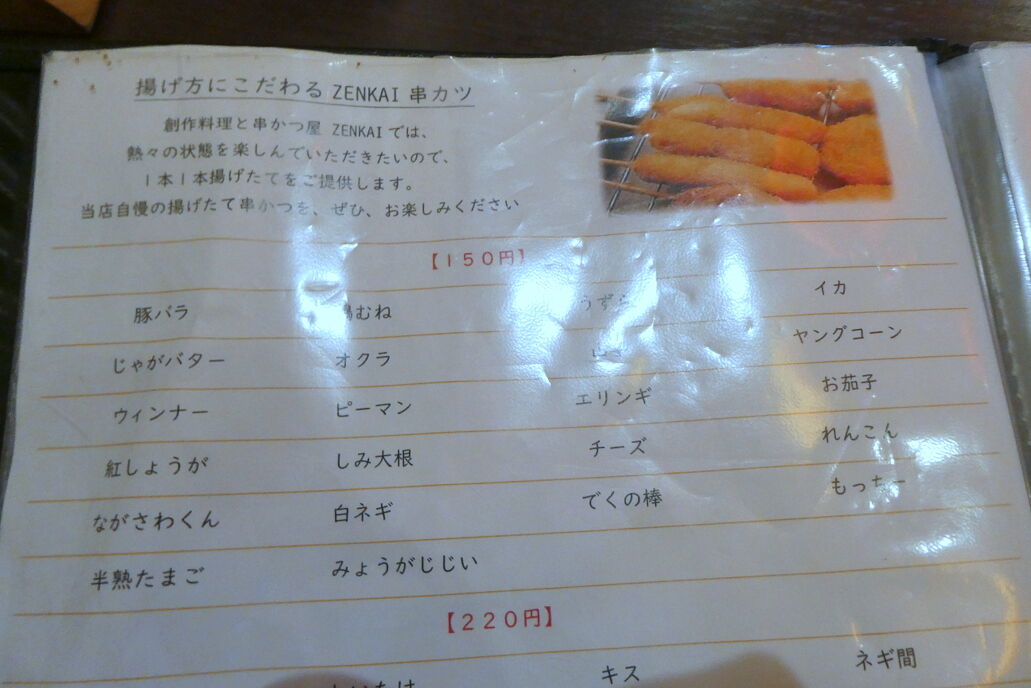 揚げ方にこだわる ZENKAI 串カツ
創作料理と串かつ屋 ZENKAIでは、
熱々の状態を楽しんでいただきたいので、
1本1本揚げたてをご提供します。
当店自慢の揚げたて串かつを、ぜひ、お楽しみください
【150円】
豚バラ 鶏むね うずら イカ
じゃがバター オクラ ヤングコーン
ウィンナー ピーマン エリンギ お茄子
紅しょうが しみ大根 チーズ れんこん
ながさわくん 白ネギ でくの棒 もっちー
半熟たまご みょうがじじい
【220円】
キス ネギ間